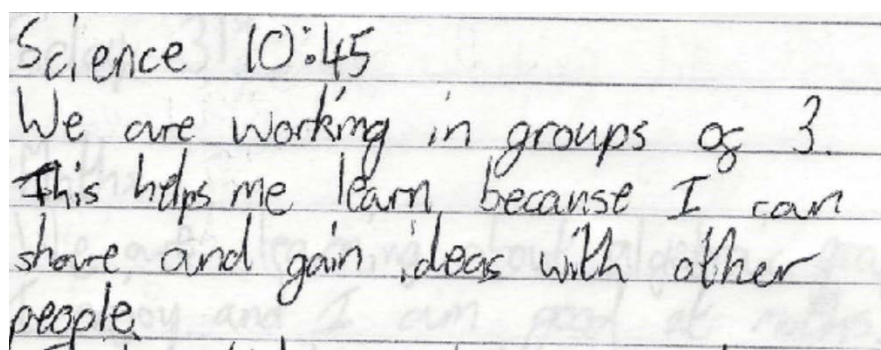 Science 10:45
We are working in groups of 3.
This helps me learn because I can
share and gain ideas with other
people.